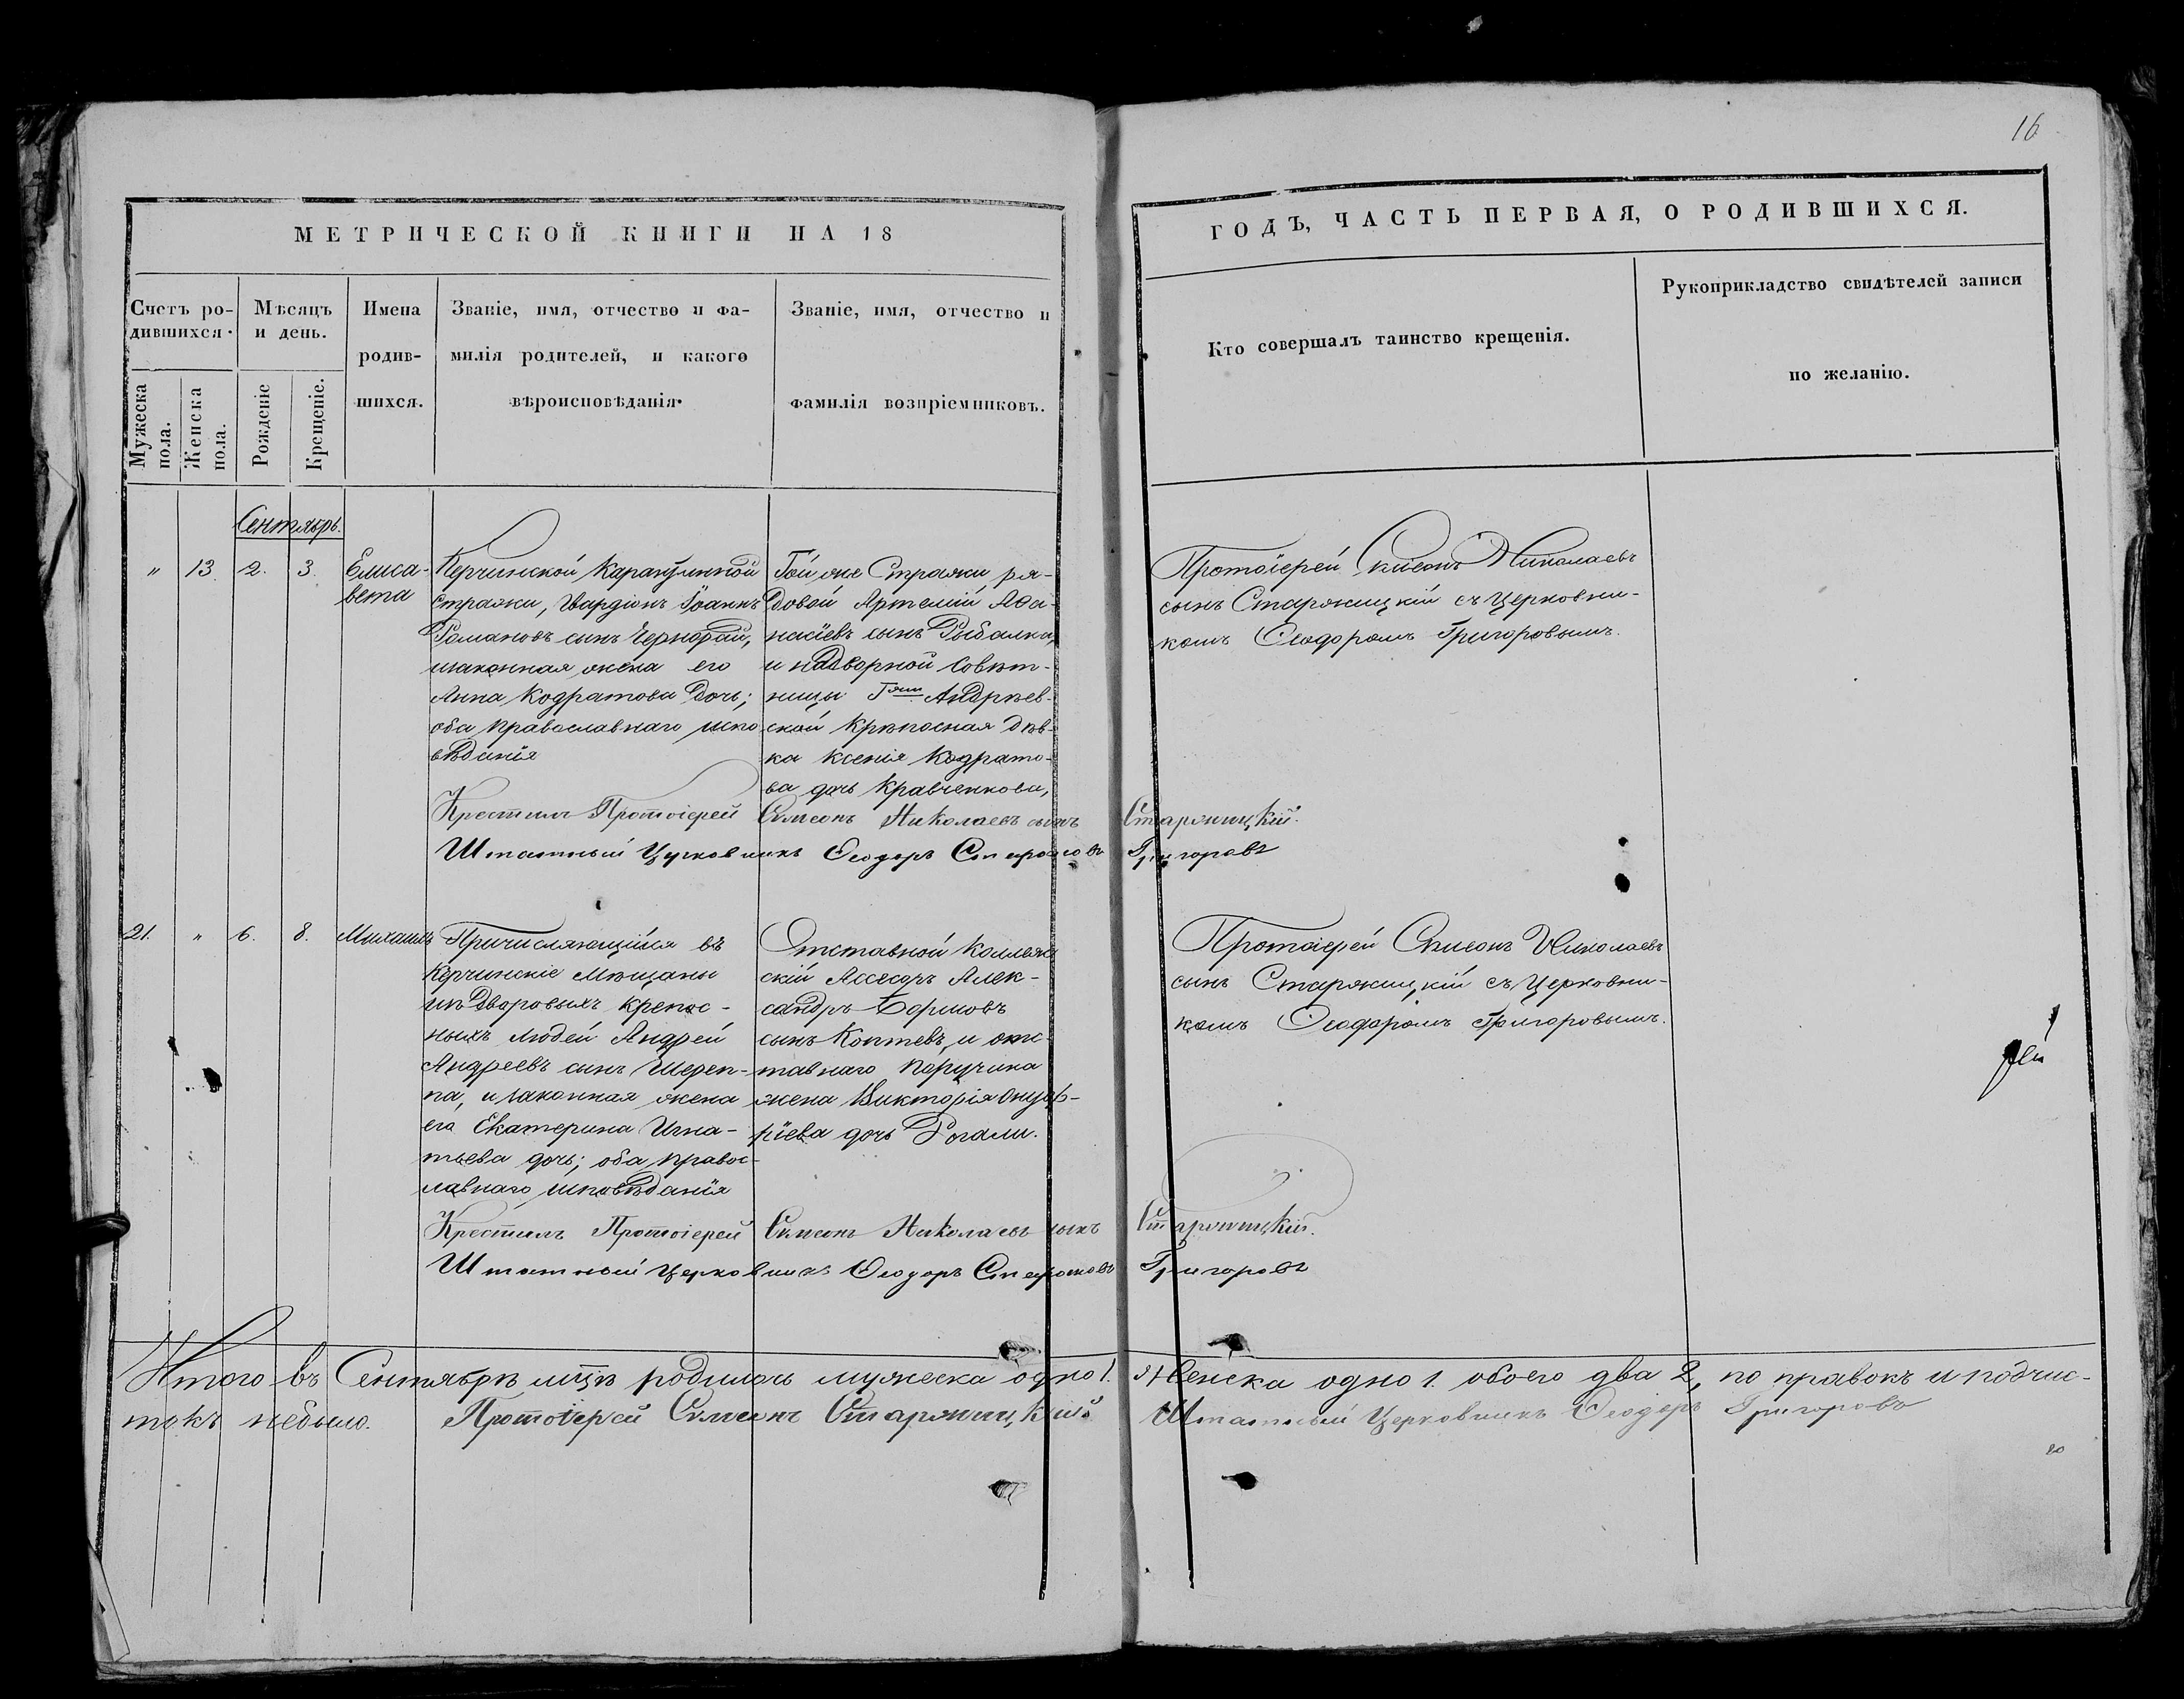 16
МЕТРИЧЕСКОЙ КНИГИ НА 18
ГОДЪ, ЧАСТЬ ПЕРВАЯ, О РОДИВШИХСЯ.
Счетъ ро-
дившихся.
Мужеска
пола.
Женска
пола.
Мѣсяцъ
и день.
Рожденіе
Крещеніе.
Имена
родив-
шихся.
Званіе, имя, отчество и фа-
милія родителей, и какого
вѣроисповѣданія.
Званіе, имя, отчество и
фамилія возпріемниковъ.
Кто совершалъ таинство крещенія.
Рукоприкладство свидѣтелей записи
по желанію.
Сентябрь.
" 13. 2. 3.
Елиса-
вета
Керчинской Карантинной
Стражи, Гвардіонъ Іоаннъ
Романовъ сынъ Чернорай,
изаконная жена его
Анна Кодратова дочь;
оба православнаго испо
вѣданія
Той же Стражи ря-
довой Артемій Аѳа-
насіевъ сынъ Рыбалка,
и надворной Совѣт-
ницы Гжи Андрѣев-
ской крѣпосная дѣв-
ка Ксенія Кодрато-
ва дочь Кравченкова,
Протоіерей Симеонъ Николаевъ
сынъ Старжицкій съ Церковни-
комъ Ѳеодоромъ Григоровымъ.
Крестилъ Протоіерей Симеонъ Николаевъ сынъ Старжицкій.
Штатный Церковникъ Ѳеодоръ Стефановъ Григоровъ
21. " 6. 8.
Михаилъ
Причисляющійся въ
Керчинскіе Мѣщаны
изъ дворовыхъ крепос-
ныхъ людей Андрей
Андреевъ сынъ
и законная жена
его Екатерина Игна-
тьева дочь; оба правос-
лавнаго исповѣданія
Отставной Коллеж
скій Ассесоръ Алек-
сандръ Ефимовъ
сынъ Коптевъ, и отс-
тавнаго Поручика
жена Викторія Онуф-
ріева дочь Рогали.
Протоіерей Симеонъ Николаевъ
сынъ Старжицкій съ Церковни-
комъ Ѳеодоромъ Григоровымъ.
Крестилъ Протоіерей Симеонъ Николаевъ сынъ Старжицкій.
Штатный Церковникъ Ѳеодоръ Стефановъ Григоровъ
Итого въ Сентябрѣ мцѣ родилось мужеска одно 1. Женска одно 1. обоего два 2, по правокъ и подчис-
токъ небыло. Протоіерей Симеонъ Старжицкій Штатный Церковникъ Ѳеодоръ Григоровъ